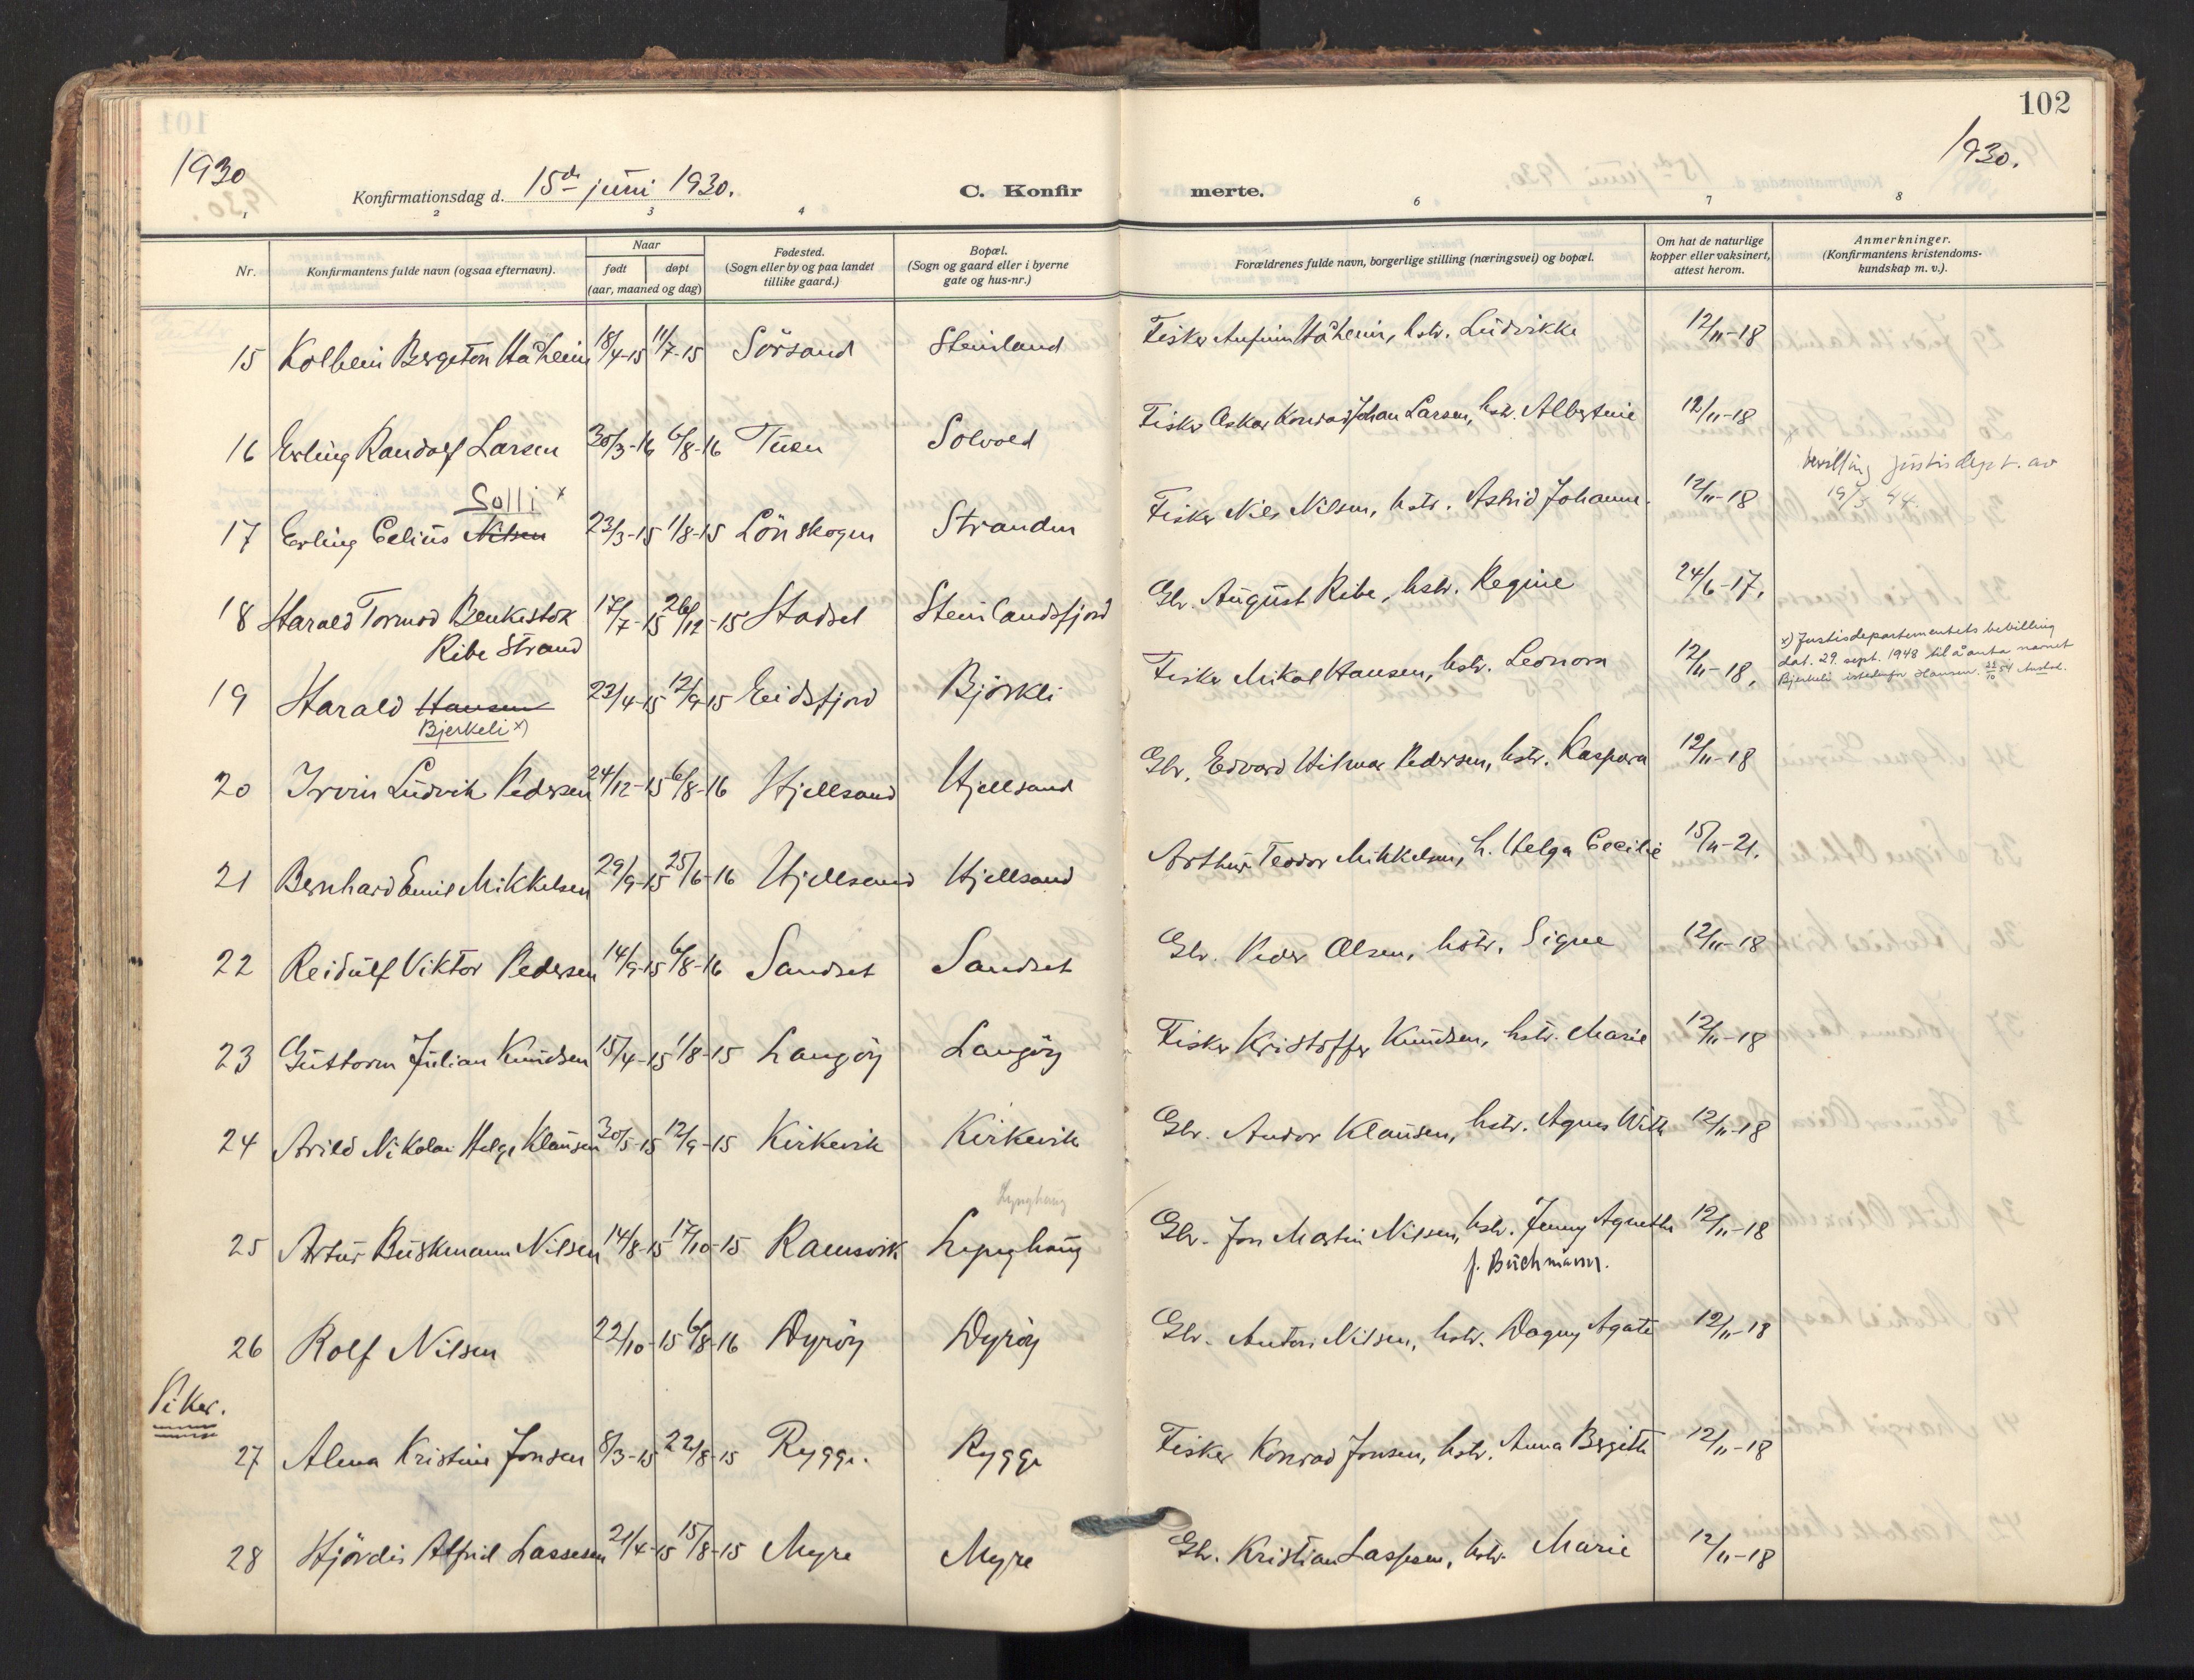 102
1930
1930.
Konfirmationsdag d. 15de juni 1930.
C. Konfir merte.
1 2 3 4 6 7 8
Nr.
Konfirmantens fulde navn (ogsaa efternavn).
Naar
født
døpt
(aar, maaned og dag)
Fødested.
(Sogn eller by og paa landet
tillike gaard.)
Bopæl.
(Sogn og gaard eller i byerne
gate og hus-nr.)
Forældrenes fulde navn, borgerlige stilling (næringsvei) og bopæl.
Om hat de naturlige
kopper eller vaksinert,
attest herom.
Anmerkninger.
(Konfirmantens kristendoms-
kundskap m. v.).
15 Kolbein Bergeton Håheim 18/4-15 11/7-15 Sörsand Steinland Fisker Anfinn Håheim, hstr. Ludvikke 12/11-18
16 Erling Randolf Larsen 30/3-16 6/8-16 Tusen Solvold Fisker Oskar Konrad Johan Larsen, hstr. Albertine 12/11-18
bevilling justisdept. av
19/5 44.
Solli x
17 Erling Celius Nilsen 23/3-15 1/8-15 Lönskogen Stranden Fisker Nils Nilsen, hstr. Astrid Johanne. 12/11-18
18 Harald Tormod Benkestok 17/7-15 26/12-15 Stadset Steinlandsfjord Gbr. August Ribe, hstr. Regine 24/6-17.
Ribe Strand
x) Justisdepartementets bevilling
dat. 29. sept. 1948 til å anta navnet
Bjerkeli istedenfor Hansen.
19 Harald Hansen 23/4-15 12/9-15 Eidsfjord Björkli Fisker Mikal Hansen, hstr. Leonora 12/11-18.
Bjerkeli x)
20 Irvin Ludvik Pedersen 24/12-15 6/8-16 Hjellsand Hjellsand Gbr. Edvard Hilmar Pedersen, hstr. Kaspara 12/11-18
21 Bernhard Emil Mikkelsen 29/9-15 25/6-16 Hjellsand Hjellsand Arthur Teodor Mikkelsen, h. Helga Cecilie 15/11-21.
22 Reidulf Viktor Pedersen 14/9-15 6/8-16 Sandset Sandset Gbr. Peder Olsen, hstr. Signe 12/11-18
23 Guttorm Julian Knudsen 15/4-15 1/8-15 Langöy Langöy Fisker Kristoffer Knudsen, hstr. Marie 12/11-18
24 Arild Nikolai Helge Klausen 30/5-15 12/9-15 Kirkevik Kirkevik Gbr. Andor Klausen, hstr. Agnes With 12/11-18
Lynghaug
25 Artur Buskmann Nilsen 14/8-15 17/10-15 Ramsvik Lynghaug Gbr. Jon Martin Nilsen, hstr. Jenny Agnethe 12/11-18
f. Buchmann.
26 Rolf Nilsen 22/10-15 6/8-16 Dyröy Dyröy Gbr. Anton Nilsen, hstr. Dagny Agate 12/11-18
Piker.
27 Alma Kristine Jonsen 8/3-15 22/8-15 Rygge. Rygge Fisker Konrad Jonsen, hstr. Anna Bergitte 12/11-18
28 Hjördis Alfrid Lassesen 21/4-15 15/8-15 Myre Myre Gbr. Kristian Lassesen, hstr. Marie 12/11-18